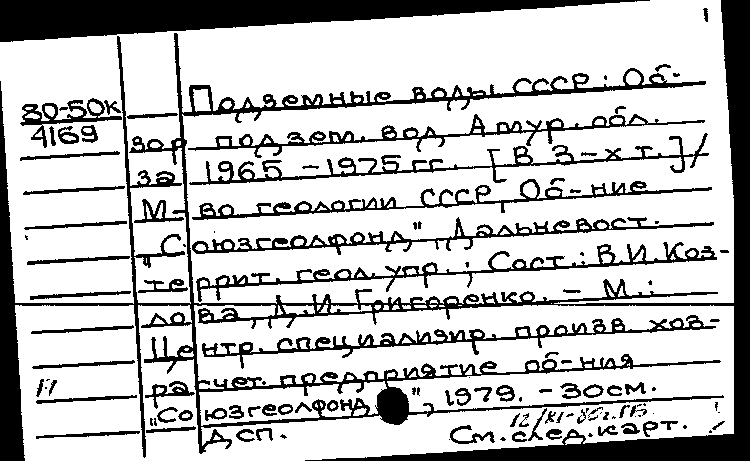 1
80-50к
4169
Подземные воды СССР: Об-
зор подзем. вод Амур. обл.
за 1965 - 1975 гг. [В 3-х т.]/
М-во геологии СССР, Об-ние
"Союзгеолфонд", Дальневост.
террит. геол. упр.; Сост.: В.И. Коз-
лова, Д.И. Григоренко. - М.:
Центр. специализир. произв. хоз-
расчет. предприятие об-ния
"Союзгеолфонд", 1979. - 30см.
Дсп.
См. след. карт.